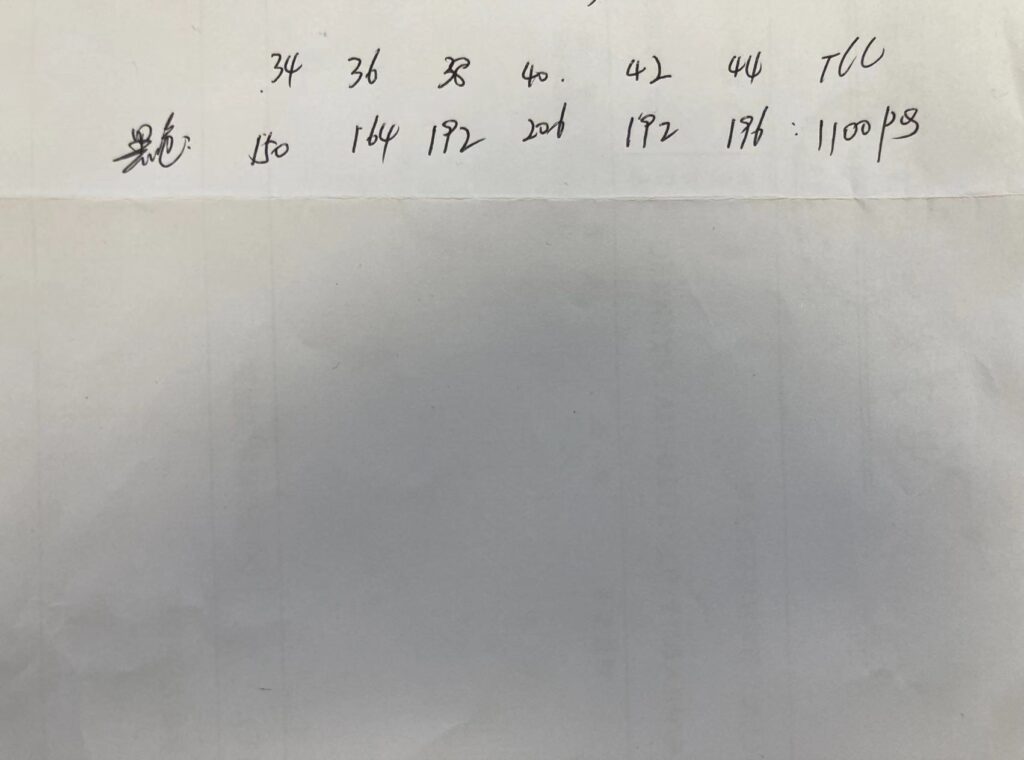 34 36 38 40. 42 44 TCC
黑色: 150 164 192 206 192 196 : 1100 ps